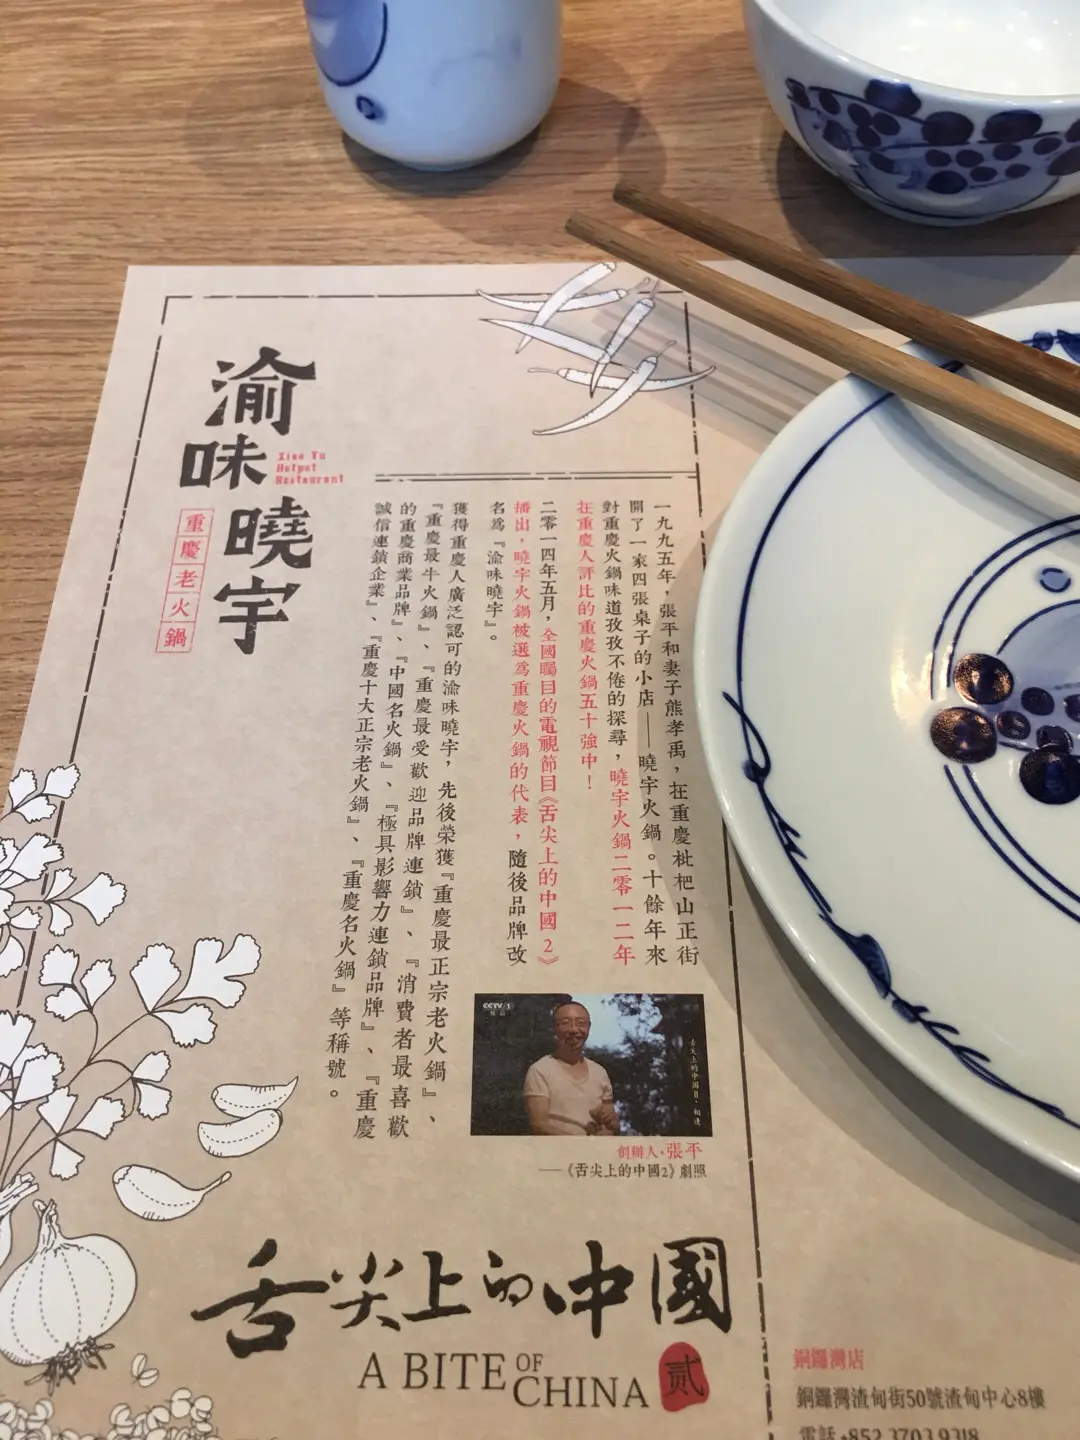 渝味曉宇
Xiao Yu
Hotpot
Restaurant
重慶老火鍋
一九九五年，張平和妻子熊孝禹，在重慶枇杷山正街
開了一家四張桌子的小店——曉宇火鍋。十餘年來
對重慶火鍋味道孜孜不倦的探尋，曉宇火鍋二零一二年
在重慶人評比的重慶火鍋五十強中！
二零一四年五月，全國矚目的電視節目《舌尖上的中國2》
播出，曉宇火鍋被選為重慶火鍋的代表，隨後品牌改
名為『渝味曉宇』。
獲得重慶人廣泛認可的渝味曉宇，先後榮獲『重慶最正宗老火鍋』、
『重慶最牛火鍋』、『重慶最受歡迎品牌連鎖』、『消費者最喜歡
的重慶商業品牌』、『中國名火鍋』、『極具影響力連鎖品牌』、『重慶
誠信連鎖企業』、『重慶十大正宗老火鍋』、『重慶名火鍋』等稱號。
CCTV 1
綜合
舌尖上的中國Ⅱ·相逢
創辦人·張平
——《舌尖上的中國2》劇照
舌尖上的中國
A BITE OF CHINA
贰
銅鑼灣店
銅鑼灣渣甸街50號渣甸中心8樓
電話 +852 3703 9318